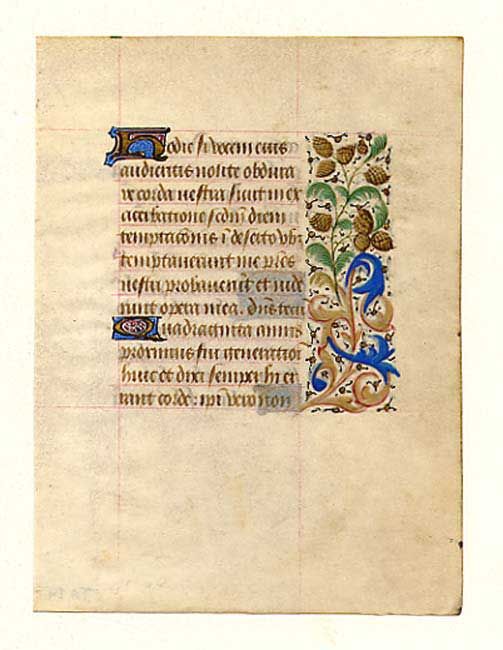 Hodie si vocem eius
audieritis nolite obdura
re corda vestra sicut in ex
acerbatione scdm diem
temptacōnis ī deserto vbi
temptaverunt me pr̄es
vestri probaverūt et vide
runt opera mea. dn̄s tecū
Quadraginta annis
proximus fui generation
huic et dixi semper hi er
rant corde: ipi vero non